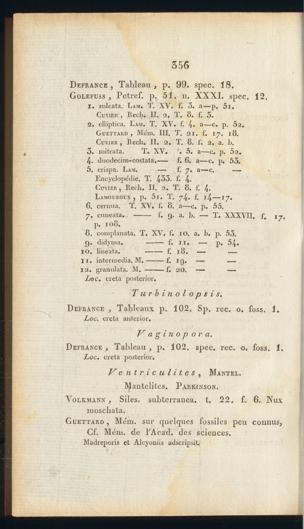 356
DEFRANCE, Tableau, p. 99. spec. 18.
GOLDFUSS, Petref. p. 51. n. XXXI. spec. 12.
1. sulcata. LAM. T. XV. f. 3. a—p. 51.
CUVIER, Rech. II. 2. T. 8. f. 3.
2. elliptica. LAM. T. XV. f. 4. a—c. p. 52.
GUETTARD, Mém. III. T. 21. f. 17. 18.
CUVIER, Rech. II. 2. T. 8. f. 2. a. b.
3. mitrata. T. XV. f. 5. a—c. p. 52.
4. duodecim-costata.— f. 6. a—c. p. 53.
5. crispa. LAM. — f. 7. a—c. —
Encyclopédie, T. 433. f. 4.
CUVIER, Rech. II. 2. T. 8. f. 4.
LAMOUROUX, p. 51. T. 74. f. 14—17.
6. cernua. T. XV. f. 8. a—c. p. 53.
7. cuneata. — f. 9. a. b. — T. XXXVII. f. 17.
p. 108.
8. complanata. T. XV. f. 10. a. b. p. 53.
9. didyma. — f. 11. — p. 54.
10. lineata. — f. 18. — —
11. intermedia. M. — f. 19. — —
12. granulata. M. — f. 20. — —
Loc. creta posterior.
Turbinolopsis.
DEFRANCE, Tableaux p. 102. Sp. rec. o. foss. 1.
Loc. creta anterior.
Vaginopora.
DEFRANCE, Tableau, p. 102. spec. rec. o. foss. 1.
Loc. creta posterior.
Ventriculites, MANTEL.
Mantelites. PARKINSON.
VOLKMANN, Siles. subterranea. t. 22. f. 6. Nux
moschata.
GUETTARD, Mém. sur quelques fossiles peu connus,
Cf. Mém. de l'Acad. des sciences.
Madreporis et Alcyoniis adscripsit.